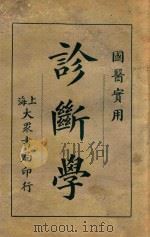 國醫實用
診斷學
上海
大眾書局印行
mtoou.info